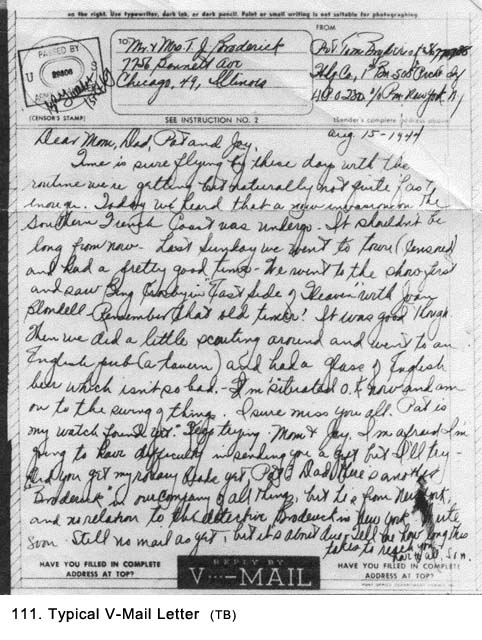 on the right. Use typewriter, dark ink, or dark pencil. Faint or small writing is not suitable for photographing
PASSED BY
U
ARMY
(CENSOR'S STAMP)
TO
Mr & Mrs. T. J. Broderick
7756 Bennett Ave
Chicago, 49, Illinois
SEE INSTRUCTION NO. 2
FROM
Pvt Tom Broderick
Hdq Co, 1st Bn 508
APO 230 c/o P.M. New York, N.Y.
(Sender's complete address above)
Aug. 15-1944
Dear Mom, Dad, Pat and Jay,
Time is sure flying by these days with the
routine we're getting but naturally not quite fast
enough. Today we heard that a new invasion on the
Southern French Coast was undergo. It shouldn't be
long from now. Last Sunday we went to town (Censored)
and had a pretty good time. We went to the show first
and saw Bing Crosby in "East Side of Heaven" with Joan
Blondell. Remember that old timer! It was good though.
Then we did a little scouting around and went to an
English pub (a tavern) and had a glass of English
beer which isn't so bad. I'm situated O.K now and am
on to the swing of things. I sure miss you all. Pat is
my watch found yet. Keep trying. Mom & Jay, I'm afraid I'm
going to have difficulty in sending you a gift but I'll try-
Did you get my rosary beads yet, Pat? Dad, there's another
"Broderick" in our company of all things, but he's from New York,
and no relation to the detective Broderick in New York. Write
soon. Still no mail as yet, but it's about due. Tell me how long this
takes to reach you.
Love to all, Son.
HAVE YOU FILLED IN COMPLETE
ADDRESS AT TOP?
REPLY BY
V···—MAIL
HAVE YOU FILLED IN COMPLETE
ADDRESS AT TOP?
111. Typical V-Mail Letter (TB)